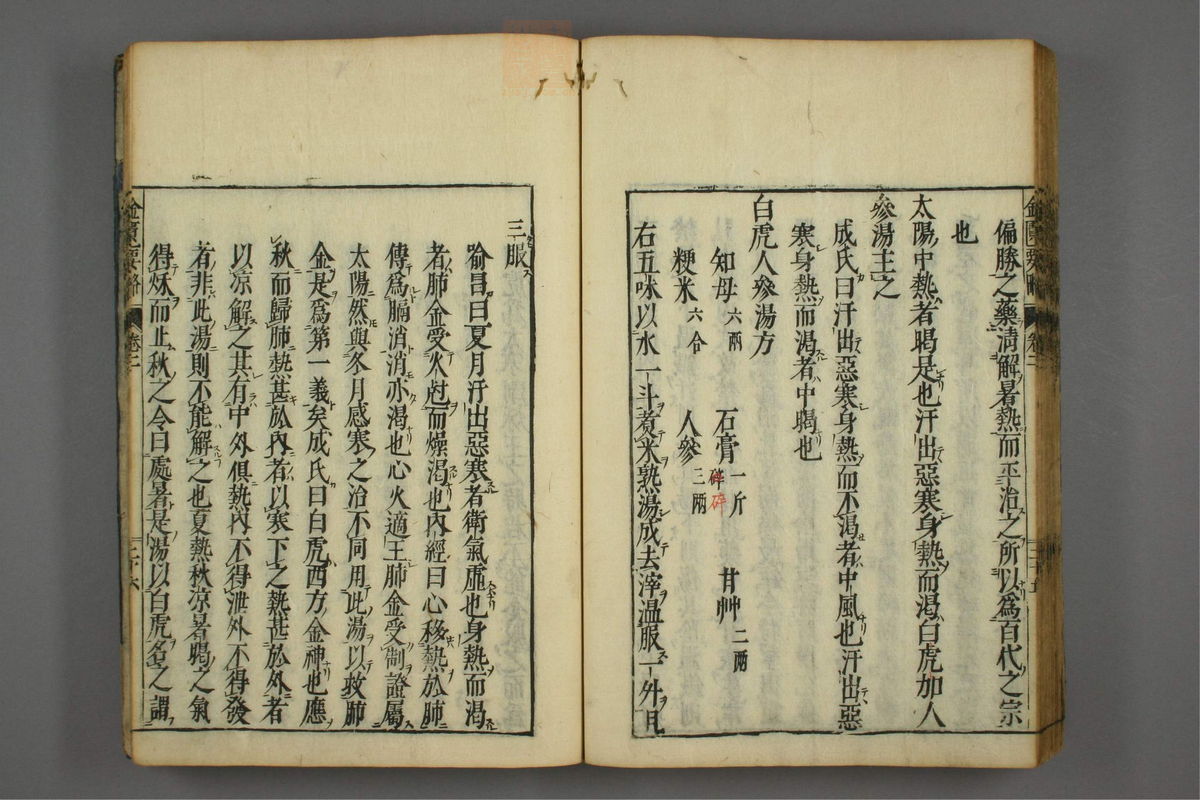 偏勝之藥淸解暑熱而平治之所以爲百代之宗
也
太陽中熱者暍是也汗出惡寒身熱而渴白虎加人
參湯主之
成氏曰汗出惡寒身熱而不渴者中風也汗出惡
寒身熱而渴者中暍也
白虎人參湯方
知母六兩 石膏一斤碎 甘艸二兩
粳米六合 人參三兩
右五味以水一斗煮米熟湯成去滓溫服一升日
三服
喻昌曰夏月汗出惡寒者衛氣虛也身熱而渴
者肺金受火尅而燥渴也內經曰心移熱於肺
傳爲膈消消亦渴也心火適王肺金受制證屬
太陽然與冬月感寒之治不同用此湯以救肺
金是爲第一義矣成氏曰白虎西方金神也應
秋而歸肺熱甚於內者以寒下之熱甚於外者
以凉解之其有中外俱熱內不得泄外不得發
者非此湯則不能解之也夏熱秋凉暑暍之氣
得秌而止秋之令曰處暑是湯以白虎名之謂
金匱要略 卷二 二十六